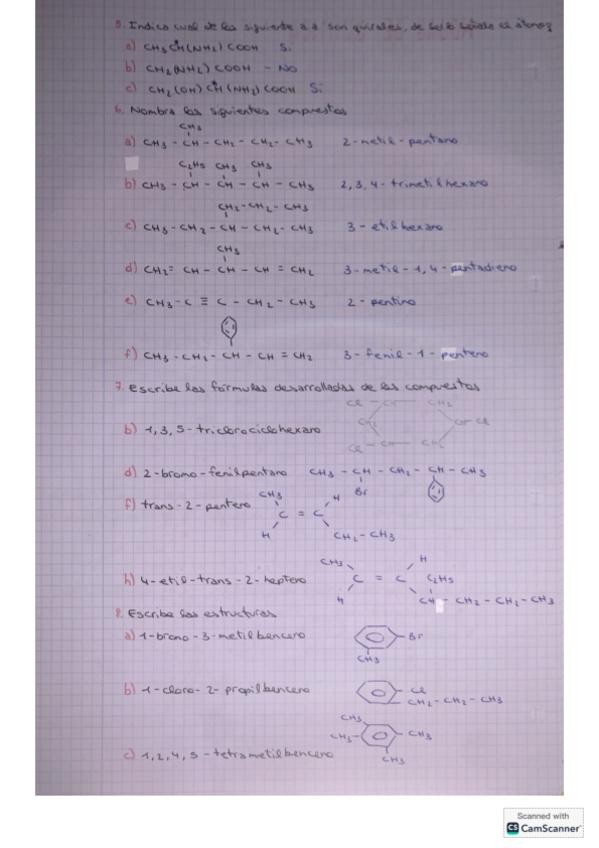 5. Indica cual de los siguiente a.a son quirales, de serlo señala el átomo?
a) CH3 CH(NH2) COOH Si
b) CH2(NH2) COOH - NO
c) CH2(OH) CH(NH2) COOH Si
6. Nombra los siguientes compuestos
CH3
a) CH3 - CH - CH2 - CH2 - CH3 2-metil-pentano
C2H5 CH3 CH3
b) CH3 - CH - CH - CH - CH3 2,3,4-trimetilhexano
CH2-CH2-CH3
c) CH3 - CH2 - CH - CH2 - CH3 3-etilhexano
CH3
d) CH2= CH - CH - CH = CH2 3-metil-1,4-pentadieno
e) CH3 - C ≡ C - CH2 - CH3 2-pentino
f) CH3 - CH2 - CH - CH = CH2 3-fenil-1-penteno
7. Escribe las fórmulas desarrolladas de los compuestos
Cl - CH CH2
b) 1,3,5-triclorociclohexano CH2 CH-Cl
Cl - CH CH2
d) 2-bromo-fenilpentano CH3 - CH - CH2 - CH - CH3
Br
f) trans-2-penteno CH3 H
C = C
H CH2-CH3
CH3 H
h) 4-etil-trans-2-hepteno C = C C2H5
H CH - CH2 - CH2 - CH3
8. Escribe las estructuras
a) 1-bromo-3-metilbenceno Br
CH3
b) 1-cloro-2-propilbenceno Cl
CH2-CH2-CH3
CH3
CH3 CH3
c) 1,2,4,5-tetrametilbenceno CH3
Scanned with
CS CamScanner